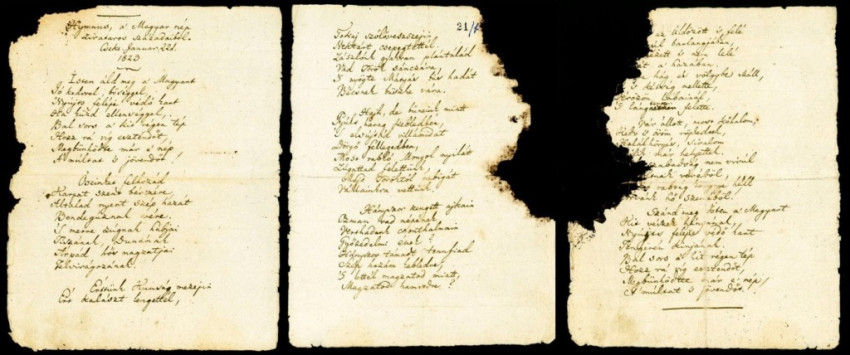 Hymnus, a' Magyar nép
zivataros századaiból.
Cseke, Januar. 22d.
1823
Isten áldd meg a' Magyart
Jó kedvvel, bőséggel,
Nyújts feléje védő kart
Ha küzd ellenséggel;
Bal sors a' kit régen tép
Hozz rá víg esztendőt,
Megbünhödte már e' nép
A' multat 's jövendőt!
Őseinket felhozád
Kárpát szent bérczére,
Általad nyert szép hazát
Bendegúznak vére.
'S merre zúgnak habjai
Tiszának, Dunának,
Árpád hős magzatjai
Felvirágzának.
Értünk Kunság mezején
Ért kalászt lengettél,
21/
Tokaj szőlővesszejin
Nektárt csepegtettél.
Zászlónk gyakran plántálád
Vad Török sánczára,
'S nyögte Mátyás bús hadát
Bécsnek büszke vára.
Hajh, de bűneink miatt
Gyúlt harag kebledben,
'S elsújtád villámidat
Dörgő fellegedben,
Most rabló Mongol nyilát
Zúgattad felettünk,
Majd Töröktől rabigát
Vállainkra vettünk.
Hányszor zengett ajkain
Ozman vad népének
Vert hadunk csonthalmain
Győzedelmi ének!
Hányszor támadt tenfiad
Szép hazám kebledre,
'S lettél magzatod miatt
Magzatod hamvvedre?
üldözött 's felé
barlangjában,
nézett 's nem lelé
a' hazában.
hág és völgybe száll,
's kétség mellette,
Vérözön lábainál,
'S lángtenger felette.
Vár állott, most kőhalom;
Kedv 's öröm röpkedtek,
Halálhörgés, siralom
már helyettek.
szabadság nem virúl
véréből,
rabság könnye hull
hő szeméből.
Szánd meg Isten a' Magyart
Kit vészek hányának,
Nyújts feléje védő kart
Tengerén kínjának.
Bal sors a' kit régen tép
Hozz rá víg esztendőt,
Megbünhödte már e' nép
A' multat 's jövendőt.